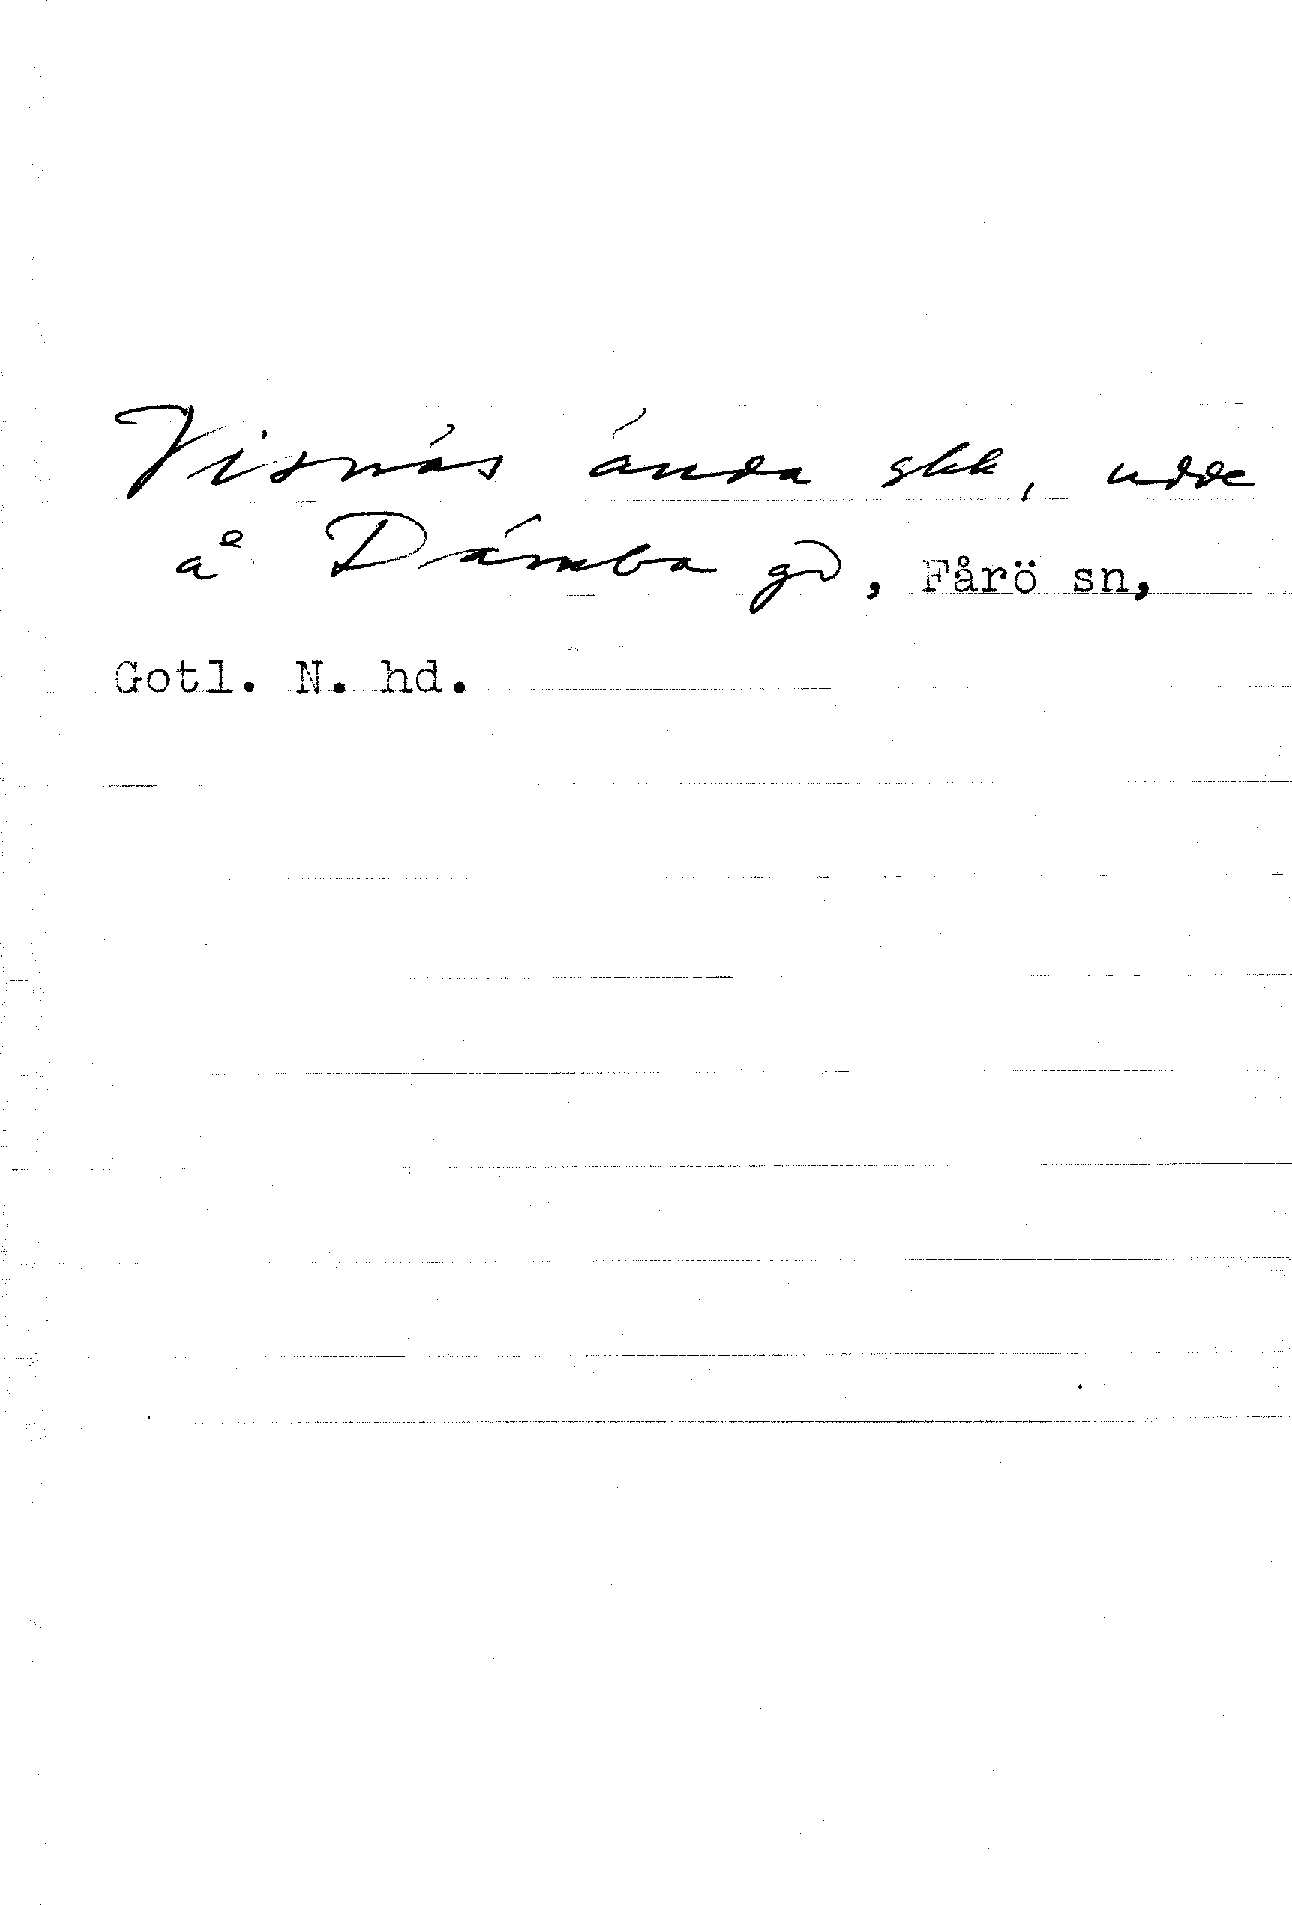 Visnás ánda skk, udde
å Dámba gd, Fårö sn,
Gotl. N. hd.